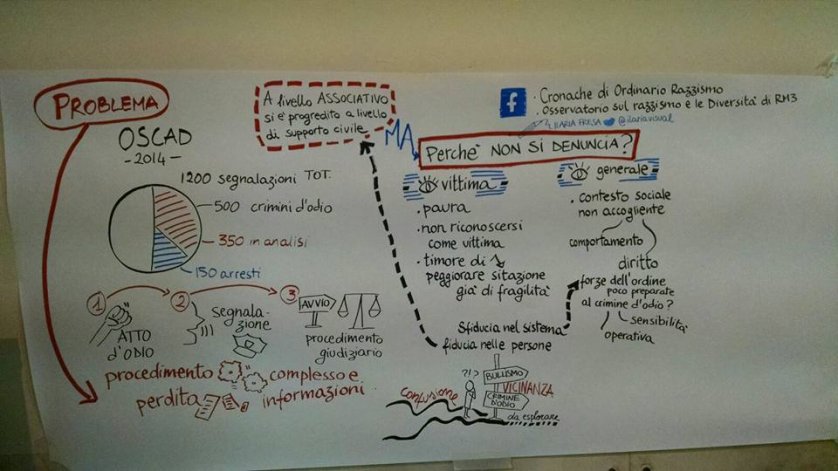 PROBLEMA
OSCAD
- 2014 -
1200 segnalazioni TOT.
500 crimini d'odio
350 in analisi
150 arresti
1
2
3
ATTO
D'ODIO
segnala-
zione
AVVIO
procedimento
giudiziario
procedimento complesso e
perdita informazioni
A livello ASSOCIATIVO
si è progredito a livello
di supporto civile
MA
f
. Cronache di Ordinario Razzismo
. Osservatorio sul razzismo e le Diversità di RM3
ILARIA FRESA @ilariavisual
Perche' NON SI DENUNCIA?
vittima
. paura
. non riconoscersi
come vittima
. timore di
peggiorare sitazione
già di fragilità
generale
. contesto sociale
non accogliente
comportamento
diritto
forze dell'ordine
poco preparate
al crimine d'odio?
sensibilità
operativa
Sfiducia nel sistema
fiducia nelle persone
confusione
?!?
BULLISMO
VICINANZA
CRIMINE
D'ODIO
da esplorare